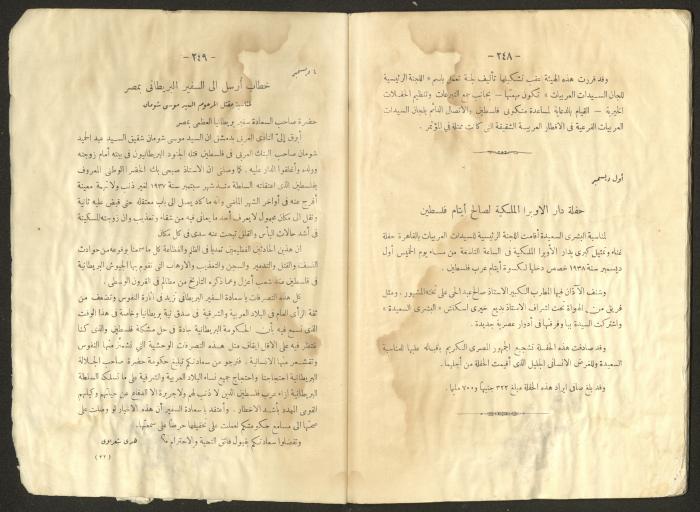 — ٢٤٨ —
وقد قررت هذه الهيئة عقب تشكيلها تأليف لجنة تعمل باسم « اللجنة الرئيسية
للجان السيدات العربيات » تكون مهمتها — بجانب جمع التبرعات وتنظيم الحفلات
الخيرية — القيام بالدعاية لمساعدة منكوبى فلسطين والاتصال الدائم بلجان السيدات
العربيات الفرعية فى الاقطار العربية الشقيقة التى كانت ممثلة فى المؤتمر .
أول ديسمبر
حفلة دار الاوبرا الملكية لصالح أيتام فلسطين
لمناسبة البشرى السعيدة أقامت اللجنة الرئيسية للسيدات العربيات بالقاهرة حفلة
غناء وتمثيل كبرى بدار الأوبرا الملكية فى الساعة التاسعة من مساء يوم الخميس أول
ديسمبر سنة ١٩٣٨ خصص دخلها لكسوة أيتام عرب فلسطين .
وشنف الآذان فيها المطرب الكبير الاستاذ صالح عبد الحى على تخته المشهور . ومثل
فريق من الهواة تحت اشراف الاستاذ بديع خيرى اسكتش « البشرى السعيدة »
واشتركت السيدة ببا وفرقتها فى أدوار عصرية جديدة .
وقد صادفت هذه الحفلة تشجيع الجمهور المصرى الكريم باقباله عليها لمناسبة
السعيدة وللغرض الانسانى الجليل الذى أقيمت الحفلة من أجلهما .
وقد بلغ صافى ايراد هذه الحفلة مبلغ ٣٢٣ جنيها و ٧٠٠ مليما .
— ٢٤٩ —
٤ ديسمبر
خطاب أرسل الى السفير البريطانى بمصر
لمناسبة مقتل المرحوم السيد موسى شومان
حضرة صاحب السعادة سفير بريطانيا العظمى بمصر
أبرق إلىّ النادى العربى بدمشق ان السيد موسى شومان شقيق السيد عبد الحميد
شومان صاحب البنك العربى فى فلسطين قتله الجنود البريطانيون فى بيته أمام زوجته
وولده وأغلقوا الدار عليه . كما وصلنى ان الاستاذ صبحى بك الخضرا الوطنى المعروف
بفلسطين الذى اعتقلته السلطة منذ شهر سبتمبر سنة ١٩٣٧ لغير ذنب ولا تهمة معينة
أفرج عنه فى أواخر الشهر الماضى وانه ما كاد يصل الى باب معتقله حتى قبض عليه ثانية
ونقل الى مكان مجهول لا يعرف أحد ما يعانى فيه من شقاء وتعذيب وان زوجته المسكينة
فى أشد حالات اليأس والقلق تبحث عنه سدى فى كل مكان
ان هذين الحادثين الفظيعين تعديا فى الظلم والفظاعة كل ما سمعنا بوقوعه من حوادث
النسف والقتل والتدمير والسجن والتعذيب والارهاب التى تقوم بها الجيوش البريطانية
فى فلسطين ضد شعب أعزل وبما ذكره التاريخ من مظالم فى القرون الوسطى .
كل هذه التصرفات يا سعادة السفير البريطانى تزيد فى اثارة النفوس وتضعف من
ثقة الرأى العام فى البلاد العربية والشرقية فى صدق نية بريطانيا وخاصة فى هذا الوقت
الذى نسمع فيه بأن الحكومة البريطانية جادة فى حل مشكلة فلسطين والذى كنا
ننتظر فيه على الاقل ايقاف مثل هذه التصرفات الوحشية التى تشمئز منها النفوس
وتقشعر منها الانسانية . فنرجو من سعادتكم تبليغ حكومة حضرة صاحب الجلالة
البريطانية احتجاجنا واحتجاج جميع نساء البلاد العربية والشرقية على ما تسلكه السلطة
البريطانية ازاء عرب فلسطين الذين لا ذنب لهم ولا جريرة الا الدفاع عن حياتهم وكيانهم
القومى المهدد بأشد الاخطار . وأعتقد يا سعادة السفير أن هذه الاخبار لو وصلت على
صحتها الى مسامع حكومتكم لعملت على تخفيفها حرصا على سمعتها .
وتفضلوا سعادتكم بقبول فائق التحية والاحترام ؟
هدى شعراوى
(٣٢)